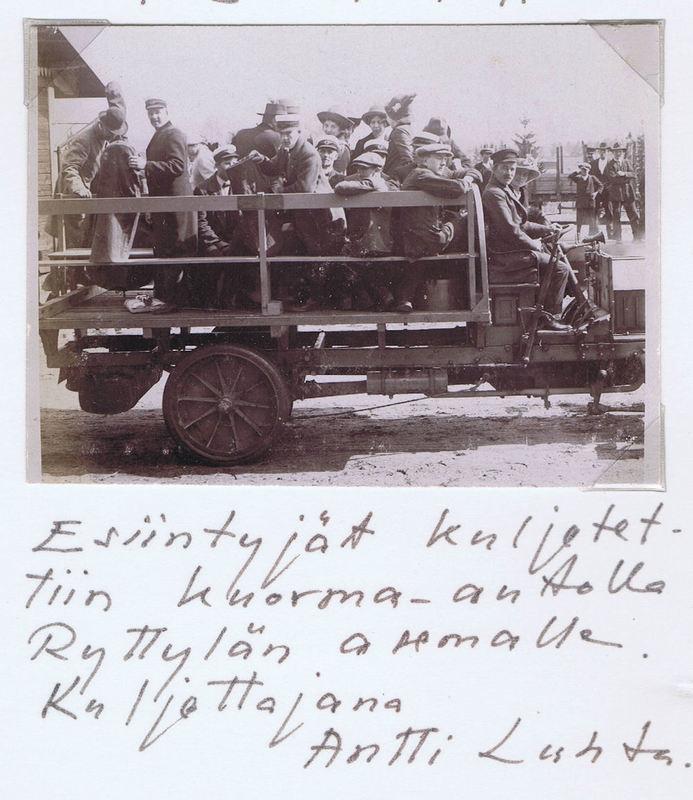 Esiintyjät kuljetet-
tiin kuorma-autolla
Ryttylän asemalle.
Kuljettajana
Antti Luhta.